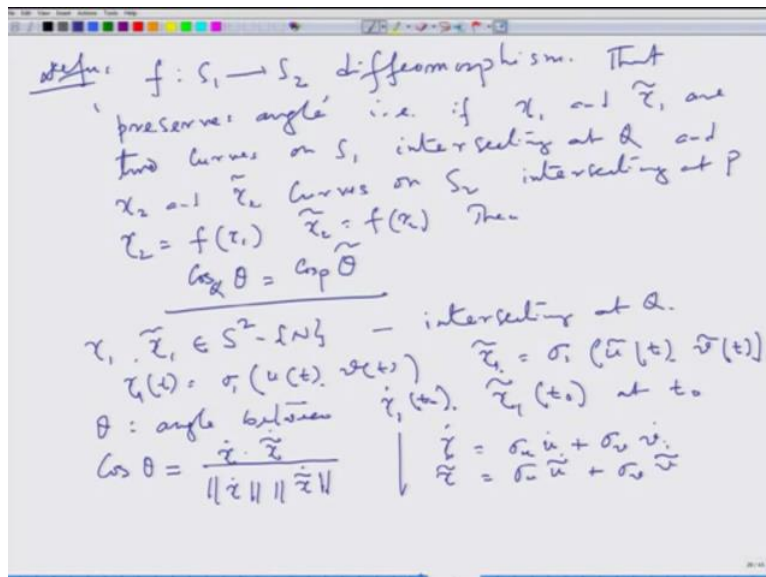 defn: f : S₁ → S₂ diffeomorphism. That
'preserves angle' i.e. if γ₁ and γ̃₁ are
two curves on S₁ intersecting at Q and
γ₂ and γ̃₂ curves on S₂ intersecting at P
γ₂ = f(γ₁) γ̃₂ = f(γ₁) Then
Cos_Q θ = Cos_P θ̃
γ₁, γ̃₁ ∈ S² - {N} — intersecting at Q.
γ₁(t) = σ₁(u(t), v(t)) γ̃₁ = σ₁(ũ(t), ṽ(t))
θ : angle between γ̇₁(t₀), γ̃̇₁(t₀) at t₀
Cos θ = γ̇ · γ̃̇ / ||γ̇|| ||γ̃̇|| | γ̇ = σᵤ u̇ + σᵥ v̇.
γ̃ = σᵤ ũ + σᵥ ṽ